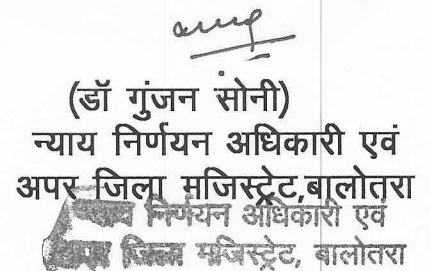 (डॉ गुंजन सोनी)
न्याय निर्णयन अधिकारी एवं
अपर जिला मजिस्ट्रेट,बालोतरा
निर्णयन अधिकारी एवं
जिला मजिस्ट्रेट, बालोतरा